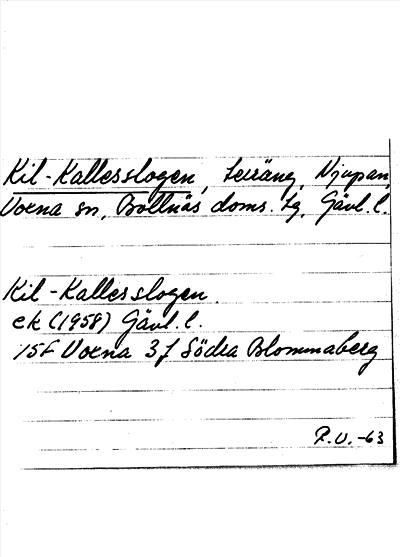 Kil-Kallesslogen, Leiräng, Njupan,
Voxna sn, Bollnäs doms. lg, Gävl. l.
Kil-Kallesslogen
ek (1958) Gävl. l.
15F Voxna 3f Södra Blommaberg
P.U. -63